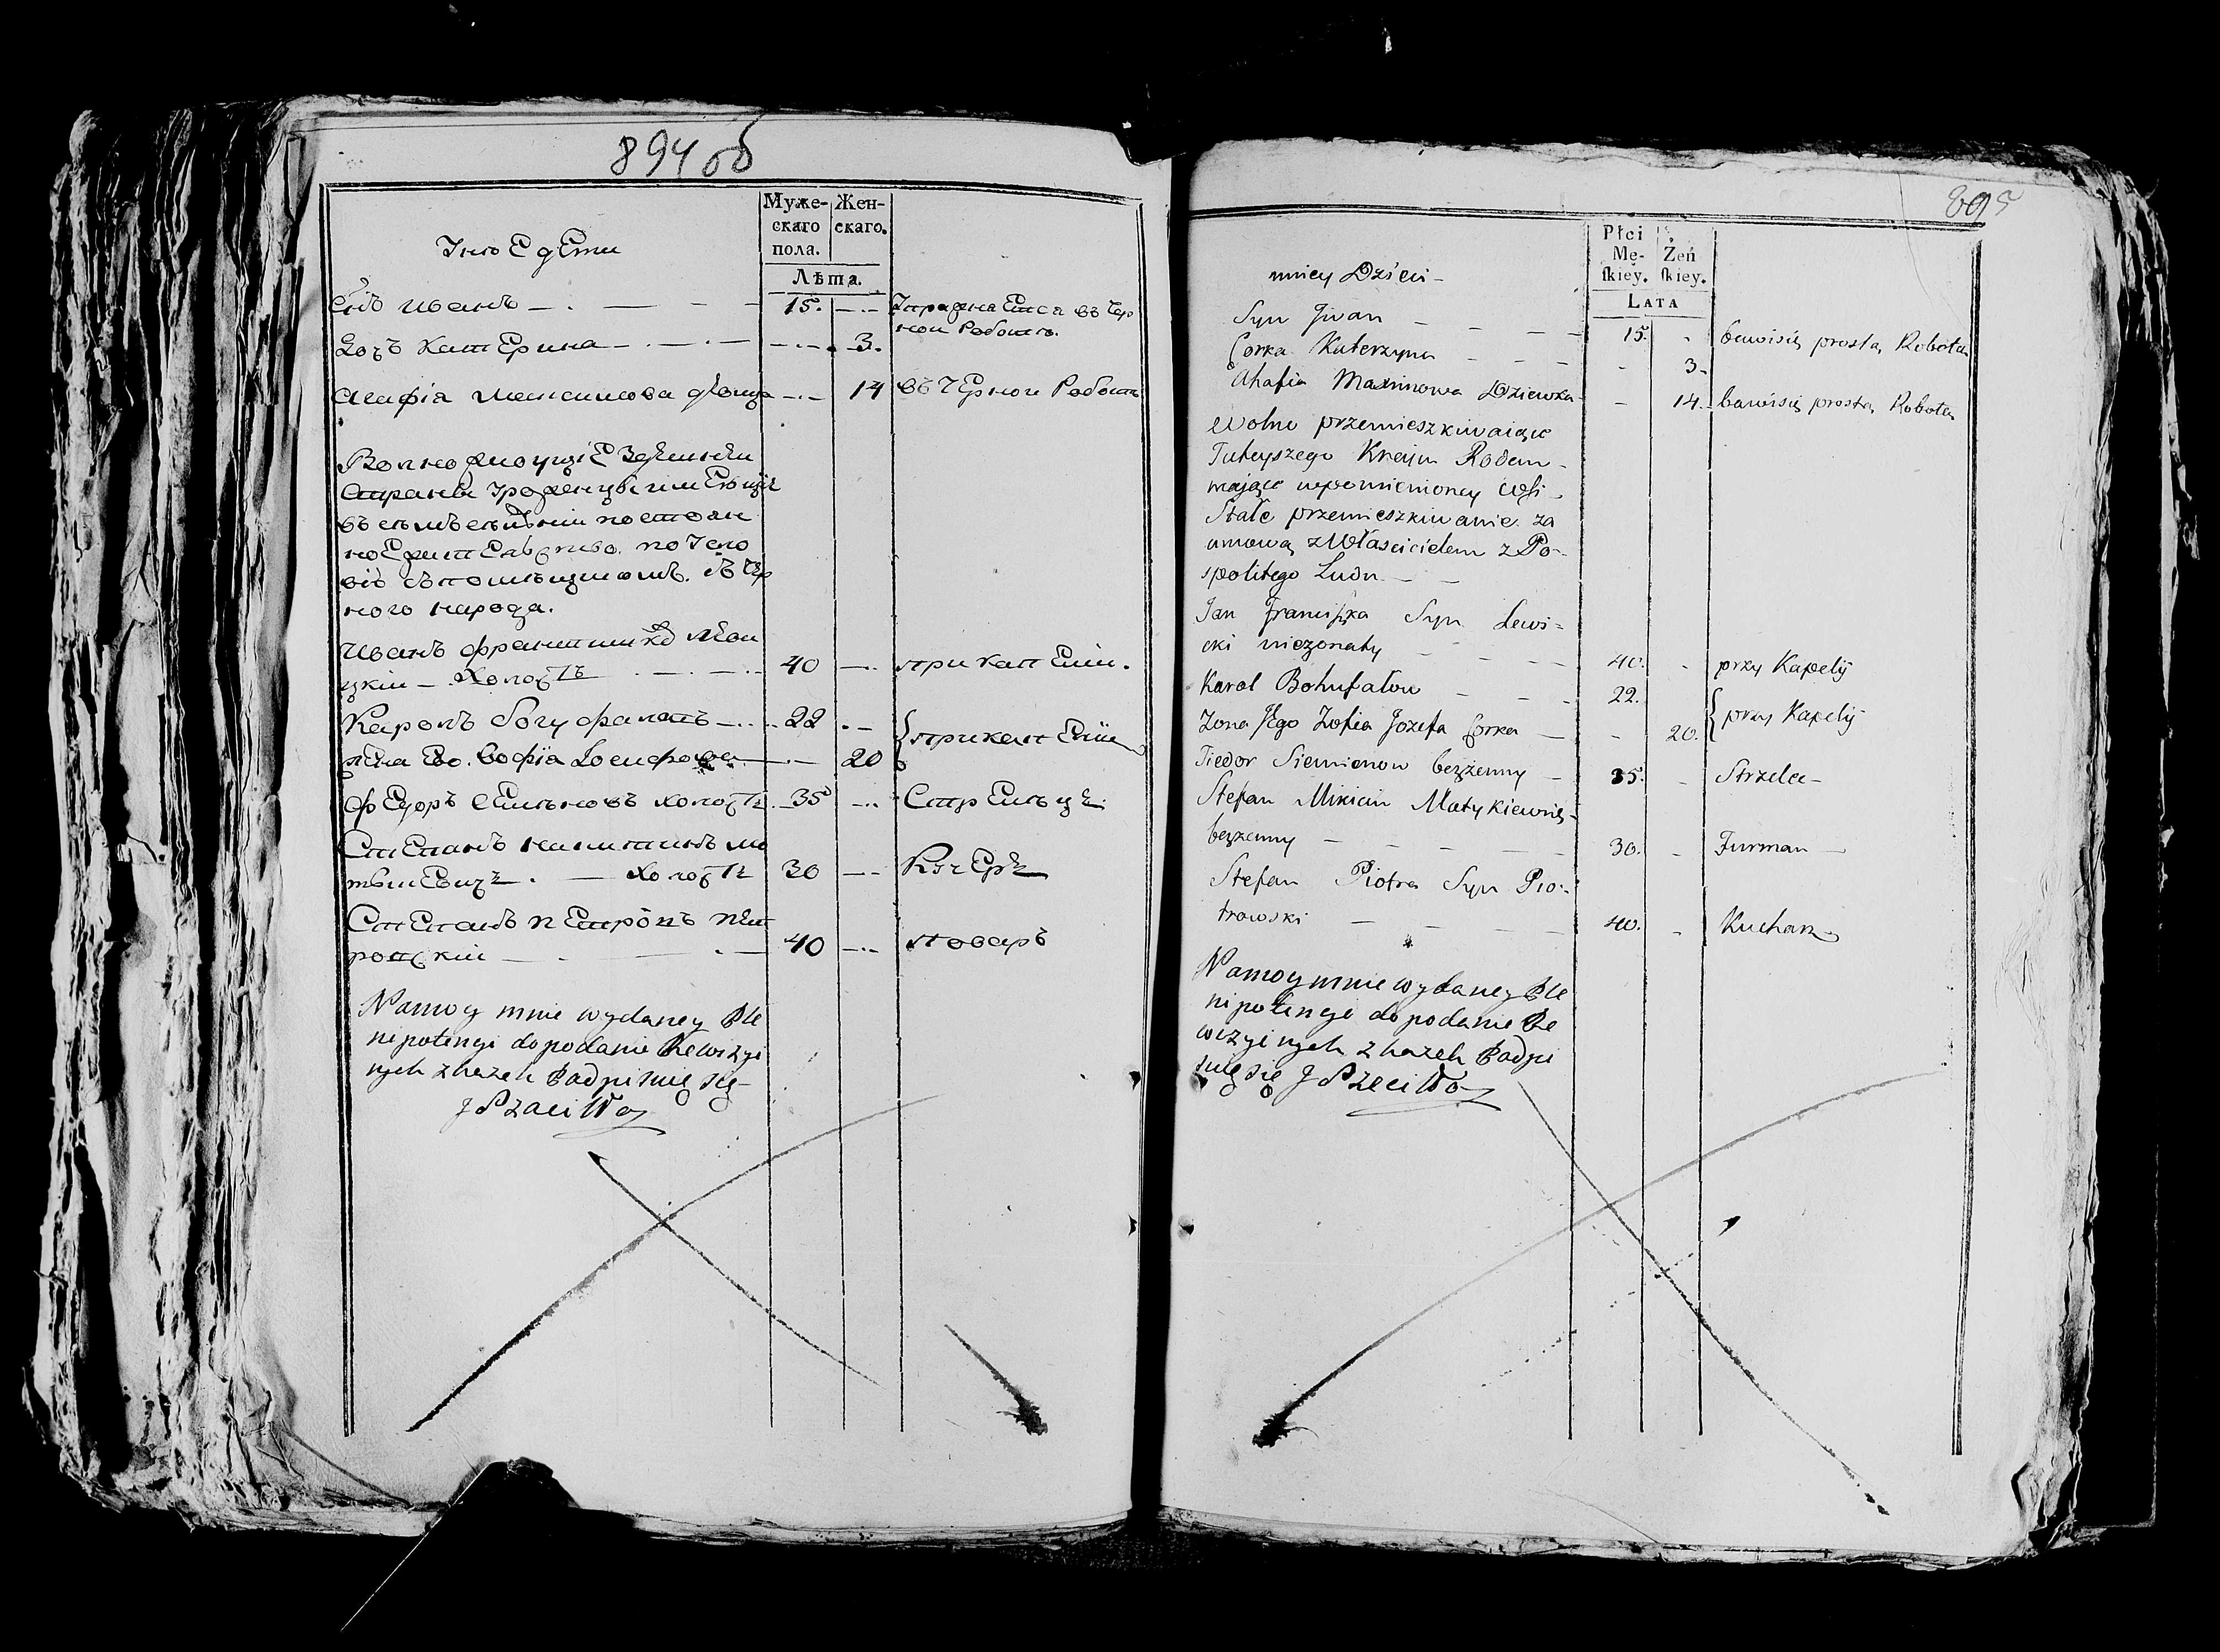 894 об
Муже-
скаго
пола.
Жен-
скаго.
Лѣта.
У нею дети
Сынъ Иванъ 15. Упражнается въ чер
ной Работе.
Дочь Катерина 3.
Агафія Максимова девица 14 въ черной Работе
Вольноживущіе здешныи
страны Уроженцы имеющіе
въ семъ селѣніи постоян
ное жителство по Усло
вію съ помѣщикомъ. съ чер
ного народа.
Иванъ Францишка Леви
цкіи Холостъ 40 при капеліи.
Кароль Богуфаловъ 22
жена Его Софія Іосифова 20 при капеліи
Федоръ Семеновъ холостъ 35 Стрелецъ
Степанъ Никитинъ Ма
тыкевичъ Холостъ 30 Кучеръ
Степанъ Петровъ Пет
ровскіи 40 поваръ
Na mocy mnie wydaney Ple
nipotencyi do podania Rewizyi
nych skazek Podpisuię się
895
Płci
Mę-
skiey.
Żeń
skiey.
LATA
u niey Dzieci
Syn Jwan 15. bawi się prostą Robotą
Corka Katerzyna 3.
Ahafia Maximowa Dziewka 14. bawi się prostą Robotą
Wolno przemieszkiwaiące
Tuteyszego Kraju Rodem
maiące wpomienioney Wsi
Stałe przemieszkiwanie za
umową z Właścicielem z Po-
spolitego Ludu
Jan Franciszka Syn Lewi=
cki nieżonaty 40. przy Kapelij
Karol Bohufałow 22.
Zona Jego Zofia Jozefa Corka 20. przy Kapelij
Fiedor Siemionow bezżenny 35. Strzelec
Stefan Mikicin Matykiewicz
bezżenny 30. Furman
Stefan Piotra Syn Pio-
trowski 40. Kucharz
Na mocy mnie wydaney Ple
nipotencyi do podania Re
wizyinych skazek Podpi
suię się